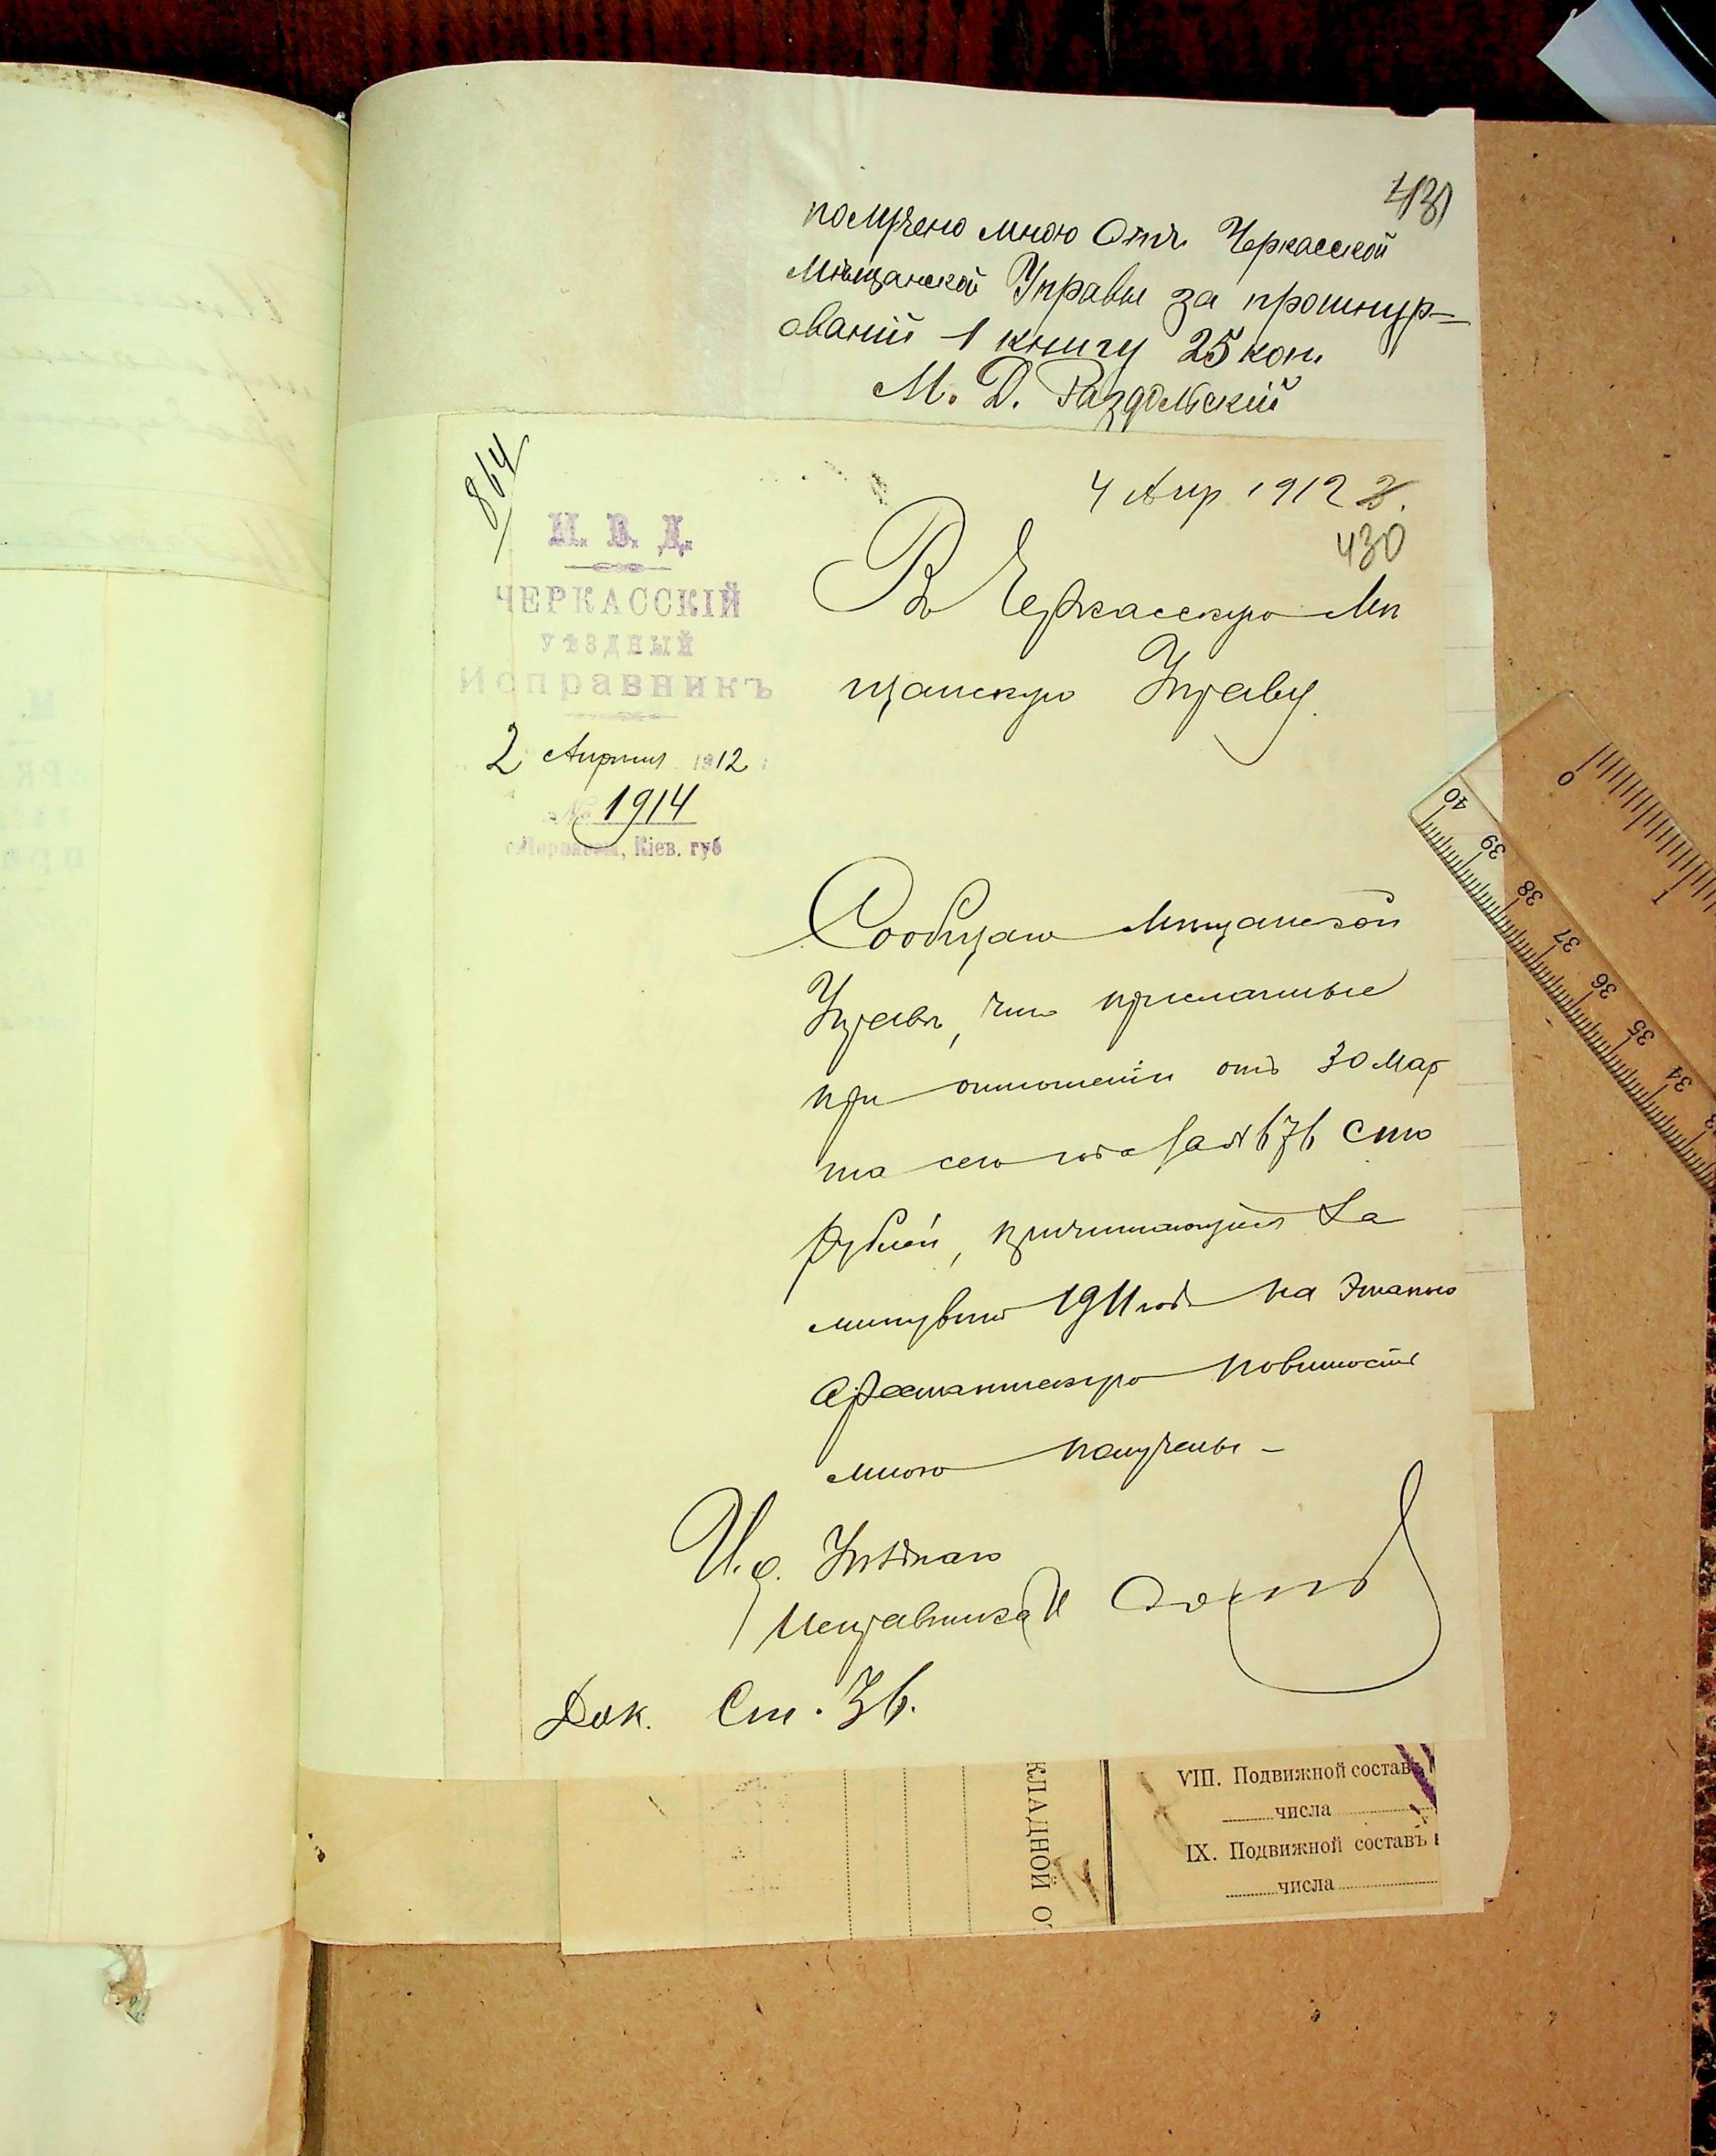 431
получено мною Отъ Черкасской
Мѣщанской Управы за прошнур-
ованій 1 книгу 25 коп
М. Д. Раздольскій
864
4 Апр 1912 г.
430
М. В. Д.
ЧЕРКАССКІЙ
УѢЗДНЫЙ
Исправникъ
2 Апрѣля 1912 г
№ 1914
г. Черкассы, Кіев. губ
Въ Черкасскую Мѣ
щанскую Управу.
Сообщаю Мѣщанской
Управѣ, что присланные
при отношеніи отъ 30 Мар
та сего года за № 676 сто
рублей, причитающіеся за
минувшій 1911 годъ на Этапно
Арестантскую повинность
мною получены -
И. д. Уѣзднаго
Исправника
Док. Ст. 36.
КЛАДНОЙ О
VIII. Подвижной составъ
числа
IX. Подвижной составъ
числа
0
1
40
39
38
37
36
35
34